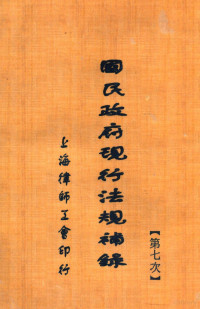 國民政府現行法規補錄
【第七次】
上海律師工會印行